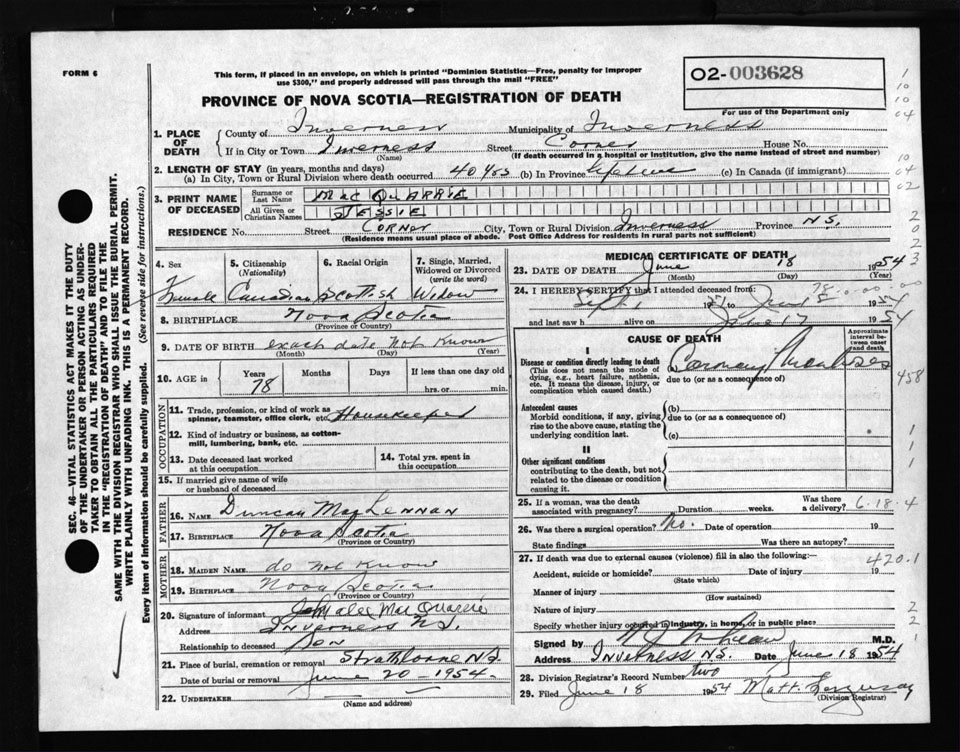 FORM 6
This form, if placed in an envelope, on which is printed "Dominion Statistics—Free, penalty for improper
use $300," and properly addressed will pass through the mail "FREE"
O2-003628
For use of the Department only
PROVINCE OF NOVA SCOTIA—REGISTRATION OF DEATH
1. PLACE OF DEATH
County of Inverness Municipality of Inverness
If in City or Town Inverness Street Corner House No.
(Name) (If death occurred in a hospital or institution, give the name instead of street and number)
2. LENGTH OF STAY (in years, months and days)
(a) In City, Town or Rural Division where death occurred 40 yrs (b) In Province lifetime (c) In Canada (if immigrant)
3. PRINT NAME OF DECEASED
Surname or Last Name MacQUARRIE
All Given or Christian Names JESSIE
RESIDENCE No. Street Corner City, Town or Rural Division Inverness Province N.S.
(Residence means usual place of abode. Post Office Address for residents in rural parts not sufficient)
4. Sex Female
5. Citizenship (Nationality) Canadian
6. Racial Origin Scottish
7. Single, Married, Widowed or Divorced (write the word) Widow
8. BIRTHPLACE Nova Scotia
(Province or Country)
9. DATE OF BIRTH exact date not known
(Month) (Day) (Year)
10. AGE in Years 78 Months Days If less than one day old
hrs. or min.
OCCUPATION
11. Trade, profession, or kind of work as
spinner, teamster, office clerk, etc. Housekeeper
12. Kind of industry or business, as cotton-
mill, lumbering, bank, etc.
13. Date deceased last worked
at this occupation
14. Total yrs. spent in
this occupation
15. If married give name of wife
or husband of deceased
FATHER
16. NAME Duncan MacLennan
17. BIRTHPLACE Nova Scotia
(Province or Country)
MOTHER
18. MAIDEN NAME do not know
19. BIRTHPLACE Nova Scotia
(Province or Country)
20. Signature of informant alex MacQuarrie
Address Inverness N.S.
Relationship to deceased Son
21. Place of burial, cremation or removal Strathlorne N.S.
Date of burial or removal June 20 - 1954
22. UNDERTAKER
(Name and address)
MEDICAL CERTIFICATE OF DEATH
23. DATE OF DEATH June 18 1954
(Month) (Day) (Year)
24. I HEREBY CERTIFY that I attended deceased from
Sept 1951 to June 18 1954
and last saw h alive on June 17 1954
CAUSE OF DEATH
Approximate interval between onset and death
I
Disease or condition directly leading to death
(This does not mean the mode of
dying, e.g., heart failure, asthenia,
etc. It means the disease, injury, or
complication which caused death.)
Coronary
due to (or as a consequence of)
Antecedent causes
Morbid conditions, if any, giving
rise to the above cause, stating the
underlying condition last.
(b)
due to (or as a consequence of)
(c)
II
Other significant conditions
contributing to the death, but not
related to the disease or condition
causing it.
25. If a woman, was the death
associated with pregnancy? Duration weeks. Was there
a delivery?
6-18-4
26. Was there a surgical operation? No. Date of operation 19
State findings Was there an autopsy?
27. If death was due to external causes (violence) fill in also the following:—
420.1
Accident, suicide or homicide? Date of injury 19
(State which)
Manner of injury
(How sustained)
Nature of injury
Specify whether injury occurred in industry, in home, or in public place
Signed by M.D.
Address Inverness N.S. Date June 18 1954
28. Division Registrar's Record Number two
29. Filed June 18 1954 Matt.
(Division Registrar)
SEC. 46—VITAL STATISTICS ACT MAKES IT THE DUTY
OF THE UNDERTAKER OR PERSON ACTING AS UNDER-
TAKER TO OBTAIN ALL THE PARTICULARS REQUIRED
IN THE "REGISTRATION OF DEATH" AND TO FILE THE
SAME WITH THE DIVISION REGISTRAR WHO SHALL ISSUE THE BURIAL PERMIT.
WRITE PLAINLY WITH UNFADING INK. THIS IS A PERMANENT RECORD.
Every item of Information should be carefully supplied. (See reverse side for instructions.)
1
10
10
04
10
04
02
2
0
2
3
458
1
1
2
2
1